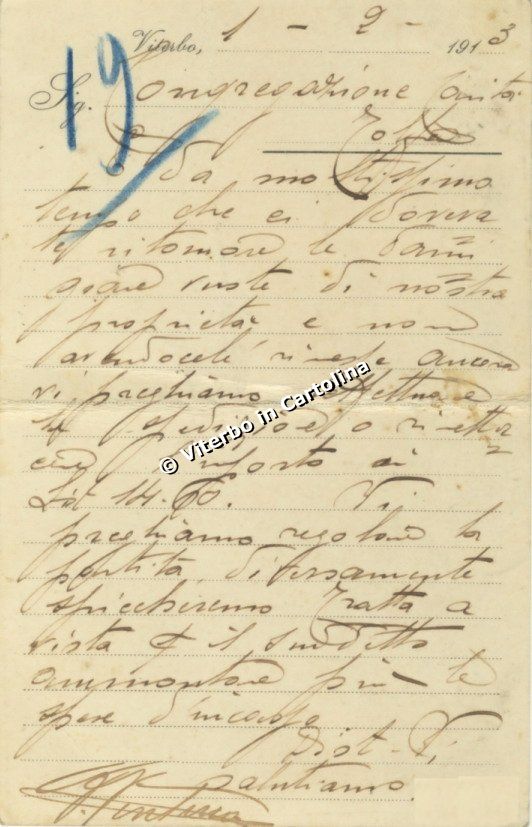 Viterbo, 1 - 2 - 1913
19
Sig. Congregazione Carità
Tolfa
Da moltissimo
tempo che ci dovera
te ritornare le dami
giane vuote di nostra
proprietà e non
avendocele rinese ancora
vi preghiamo
la spedizione o rimetter
importo di
Lit 14.60. Vi
preghiamo regolare la
partita, diversamente
spiccheremo tratta a
vista il suddetto
ammontare più le
spese d'incasso
Dist. Vi
salutiamo
© Viterbo in Cartolina